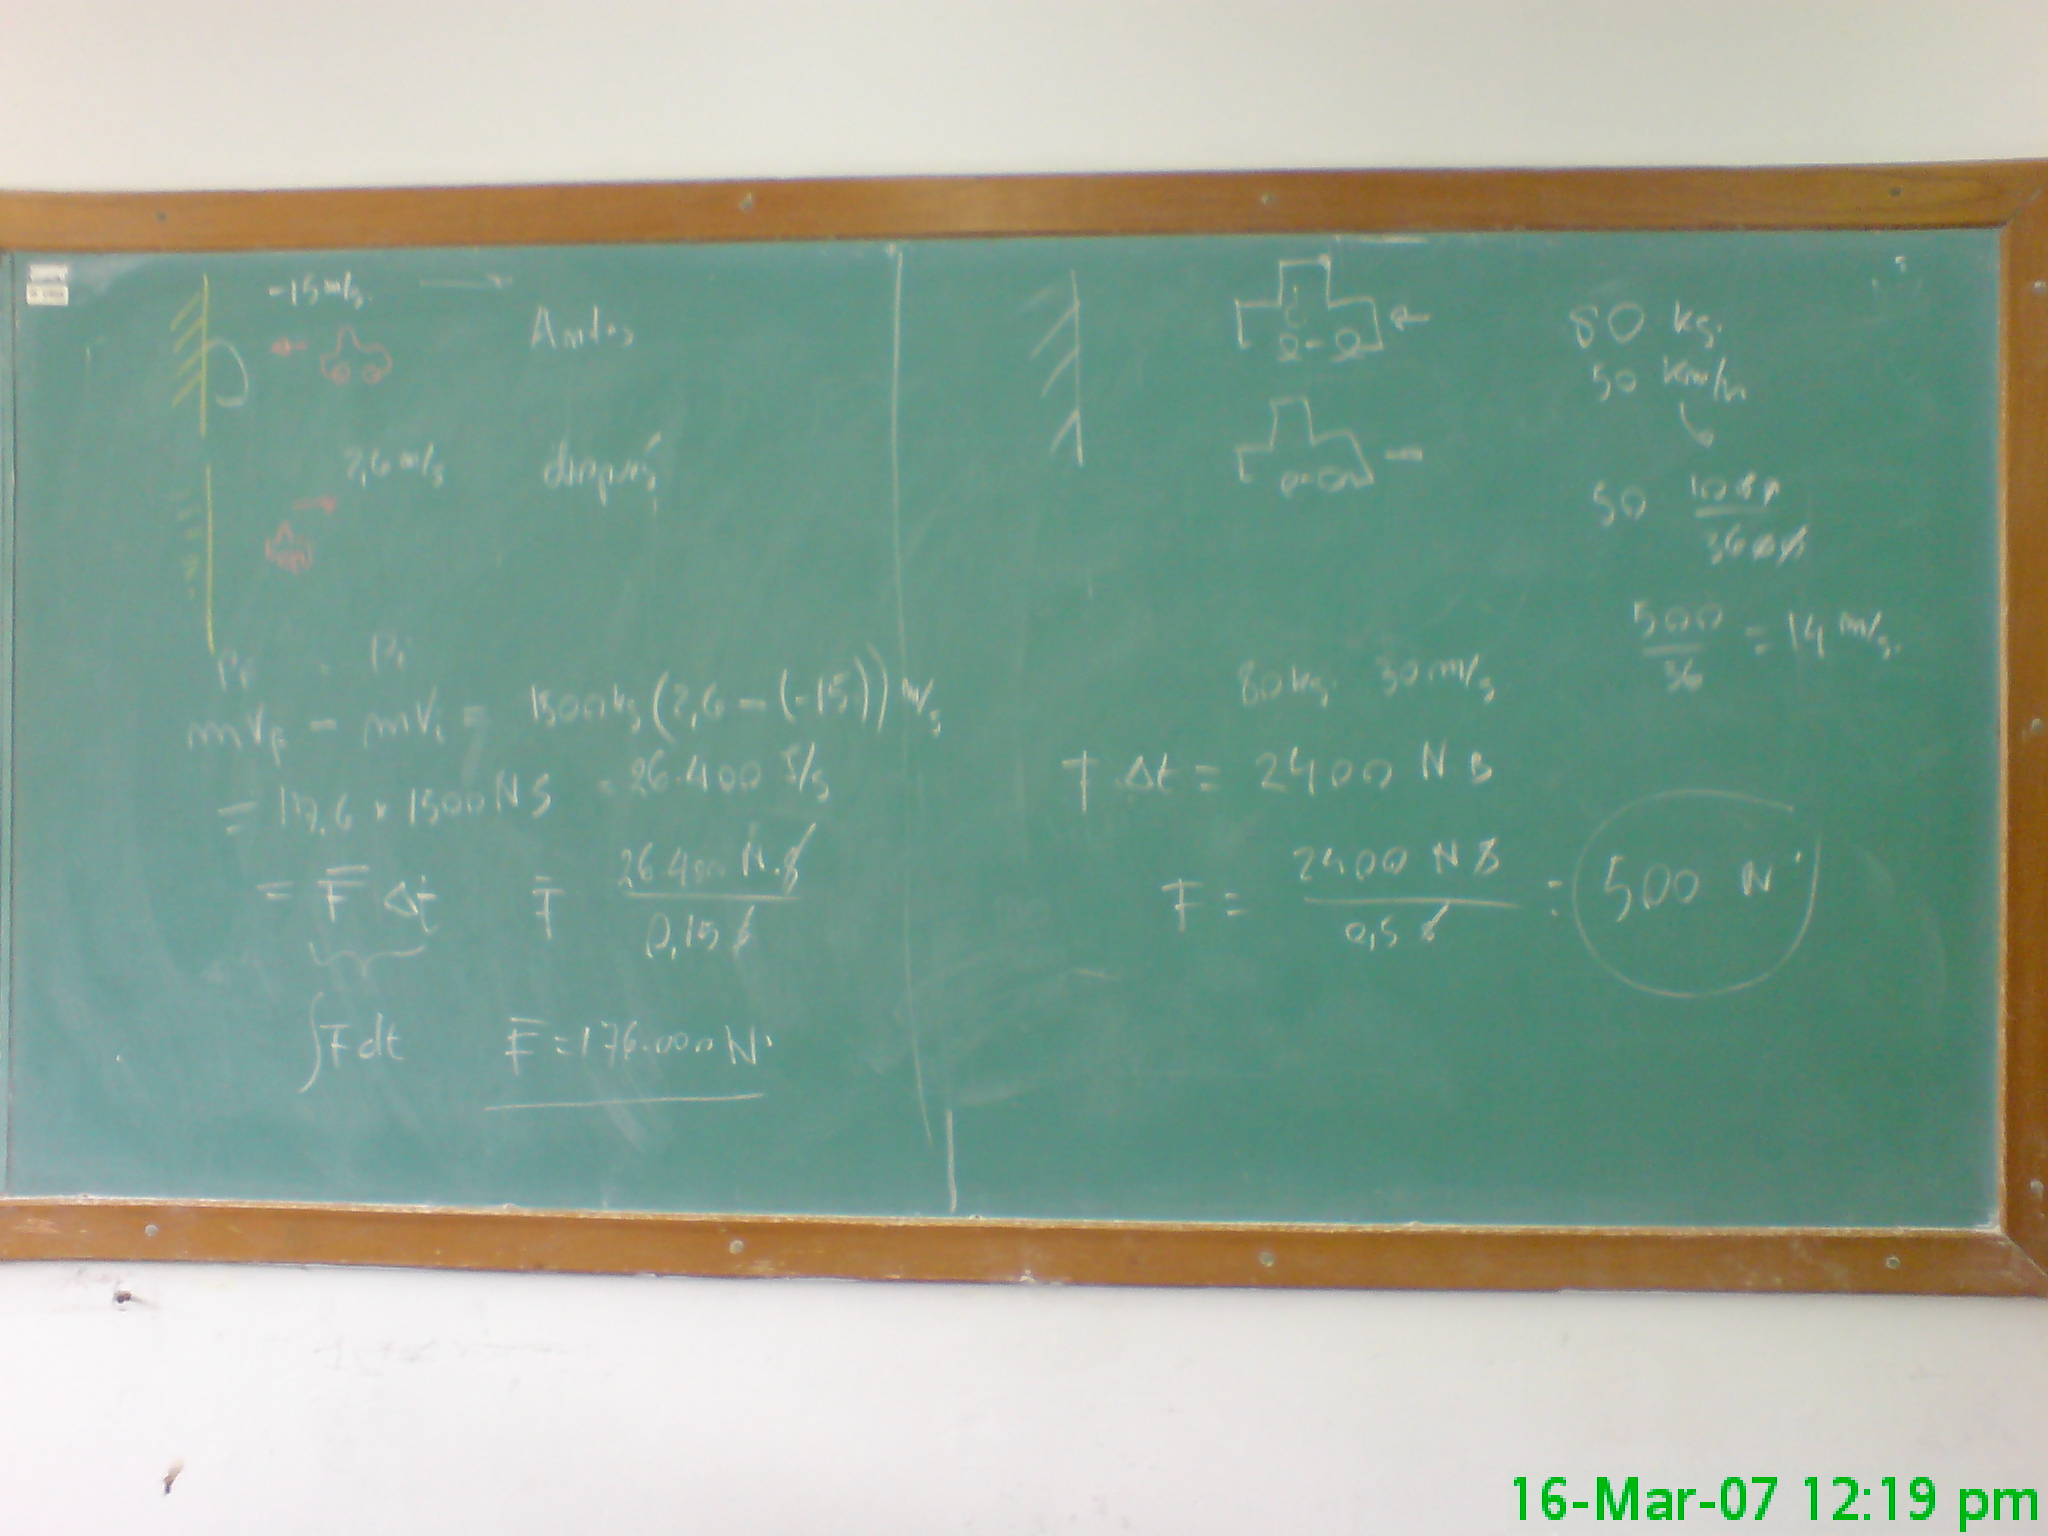 -15 m/s.
Antes
2,6 m/s
después
Pf - Pi
mVf - mVi = 1500 kg (2,6 - (-15)) m/s
= 17,6 x 1500 N S = 26.400 J/s
= F̅ Δt F̅ 26.400 N.s
0,15 s
∫F dt F̅ = 176.000 N
80 kg.
50 km/h
50 1000
3600
500
36
= 14 m/s.
80 kg. 30 m/s
F Δt = 2400 N s
F = 2400 N s
0,5 s
= 500 N
16-Mar-07 12:19 pm